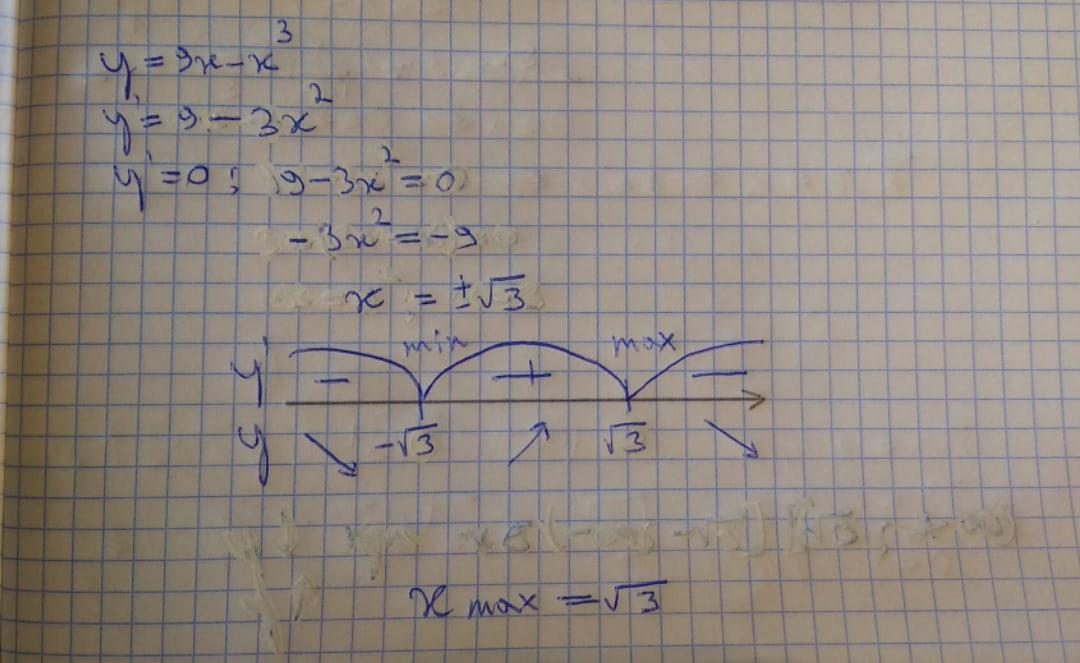 y = 9x - x³
y' = 9 - 3x²
y' = 0 ; 9 - 3x² = 0
- 3x² = -9
x = ±√3
min max
y' - + -
-√3 √3
y
x max = √3